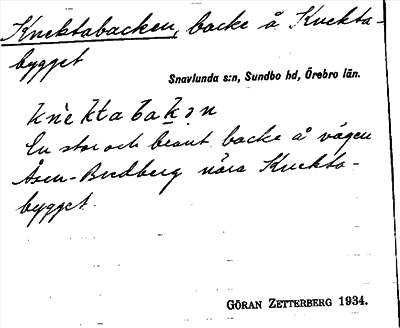 Knektabacken, backe å Knekta-
bygget
Snavlunda s:n, Sundbo hd, Örebro län.
knèktabakən
En stor och brant backe å vägen
Åsen-Bredberg nära Knekta-
bygget.
GÖRAN ZETTERBERG 1934.